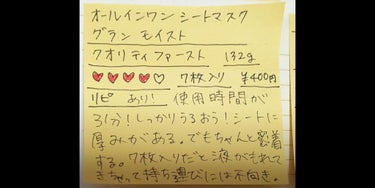 オールインワン シートマスク
グラン モイスト
クオリティファースト 132g
♥♥♥♥♡ 7枚入り ¥400円
リピ あり! 使用時間が
3分!しっかりうるおう!シートに
厚みがある。でもちゃんと密着
する。7枚入りだと液がもれて
きちゃって持ち運びには不向き。